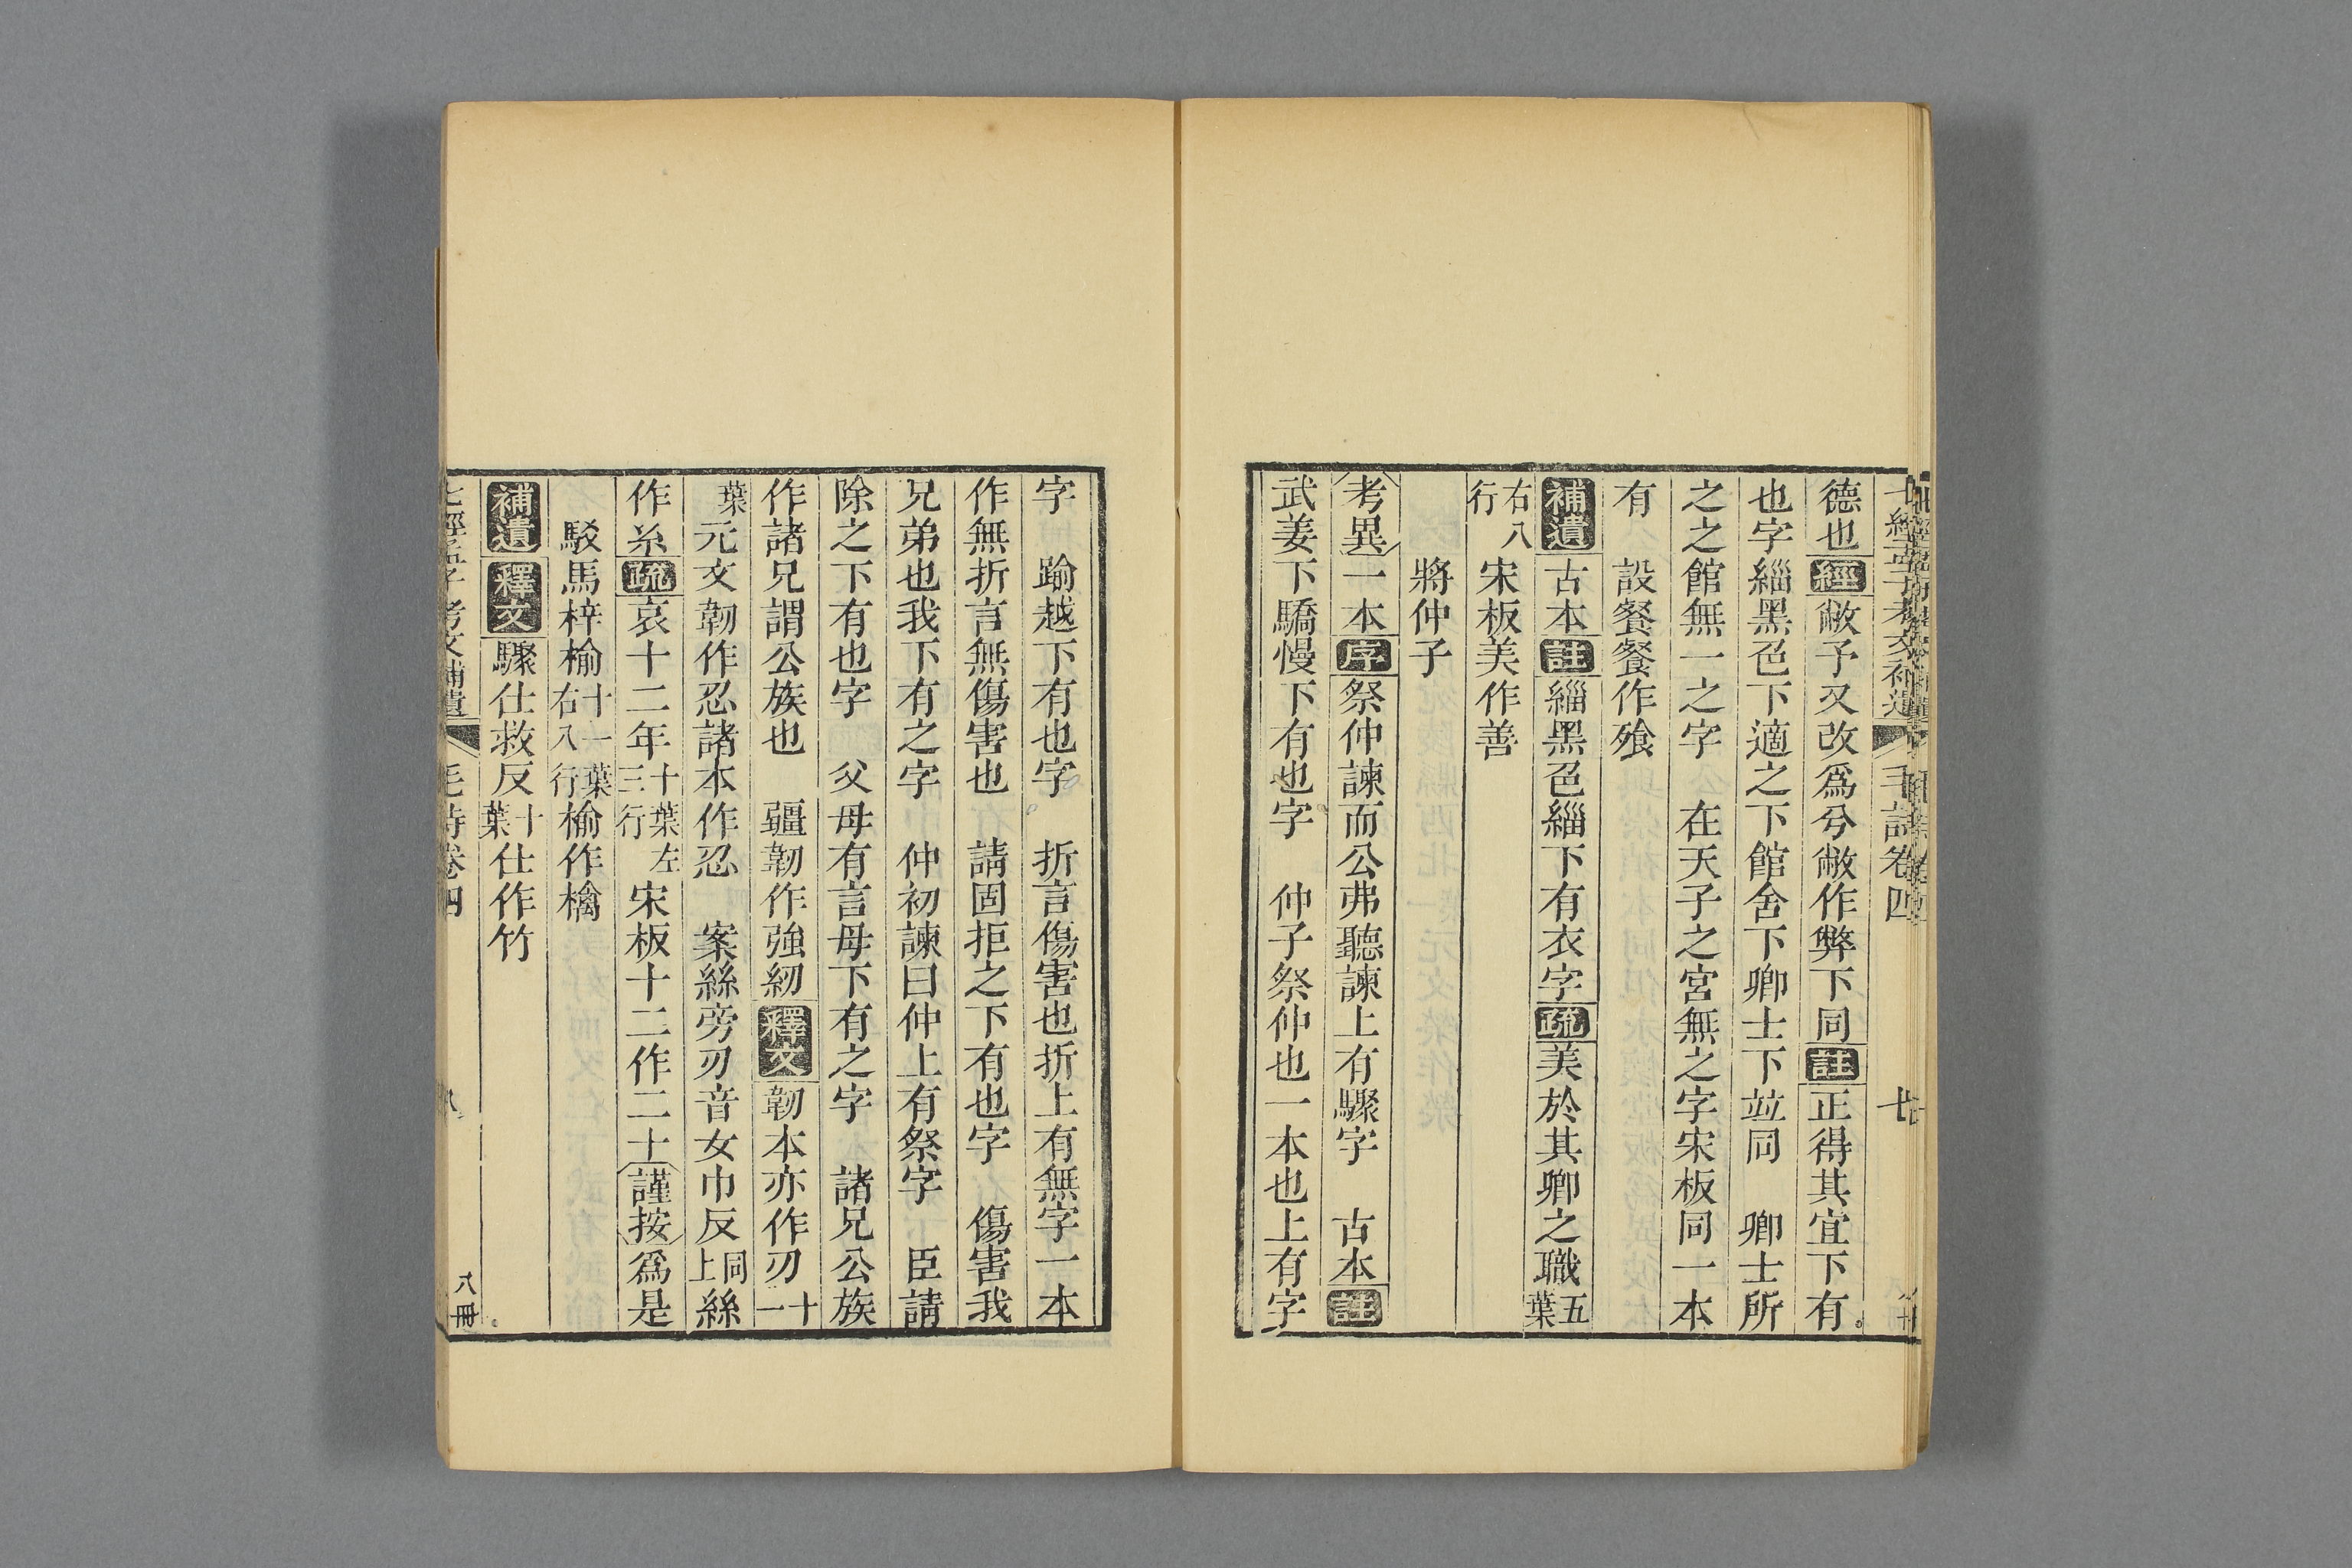 德也經敝予又改爲兮敝作弊下同註正得其宜下有
也字緇黑色下適之下館舍下卿士下竝同　卿士所
之之館無一之字　在天子之宮無之字宋板同一本
有　設餐餐作飧
補遺古本註緇黑色緇下有衣字疏美於其卿之職五葉
右八行宋板美作善
將仲子
考異一本序祭仲諫而公弗聽諫上有驟字　古本註
武姜下驕慢下有也字　仲子祭仲也一本也上有字
字　踰越下有也字　折言傷害也折上有無字一本
作無折言無傷害也　請固拒之下有也字　傷害我
兄弟也我下有之字　仲初諫曰仲上有祭字　臣請
除之下有也字　父母有言母下有之字　諸兄公族
作諸兄謂公族也　彊韌作強紉釋文韌本亦作刃十一
葉元文韌作忍諸本作忍　案絲旁刃音女巾反同上絲
作糸疏哀十二年十葉左三行宋板十二作二十謹按爲是
駁馬梓榆十一葉右八行榆作檎
補遺釋文驟仕救反十葉仕作竹
七經孟子考文補遺　毛詩卷四